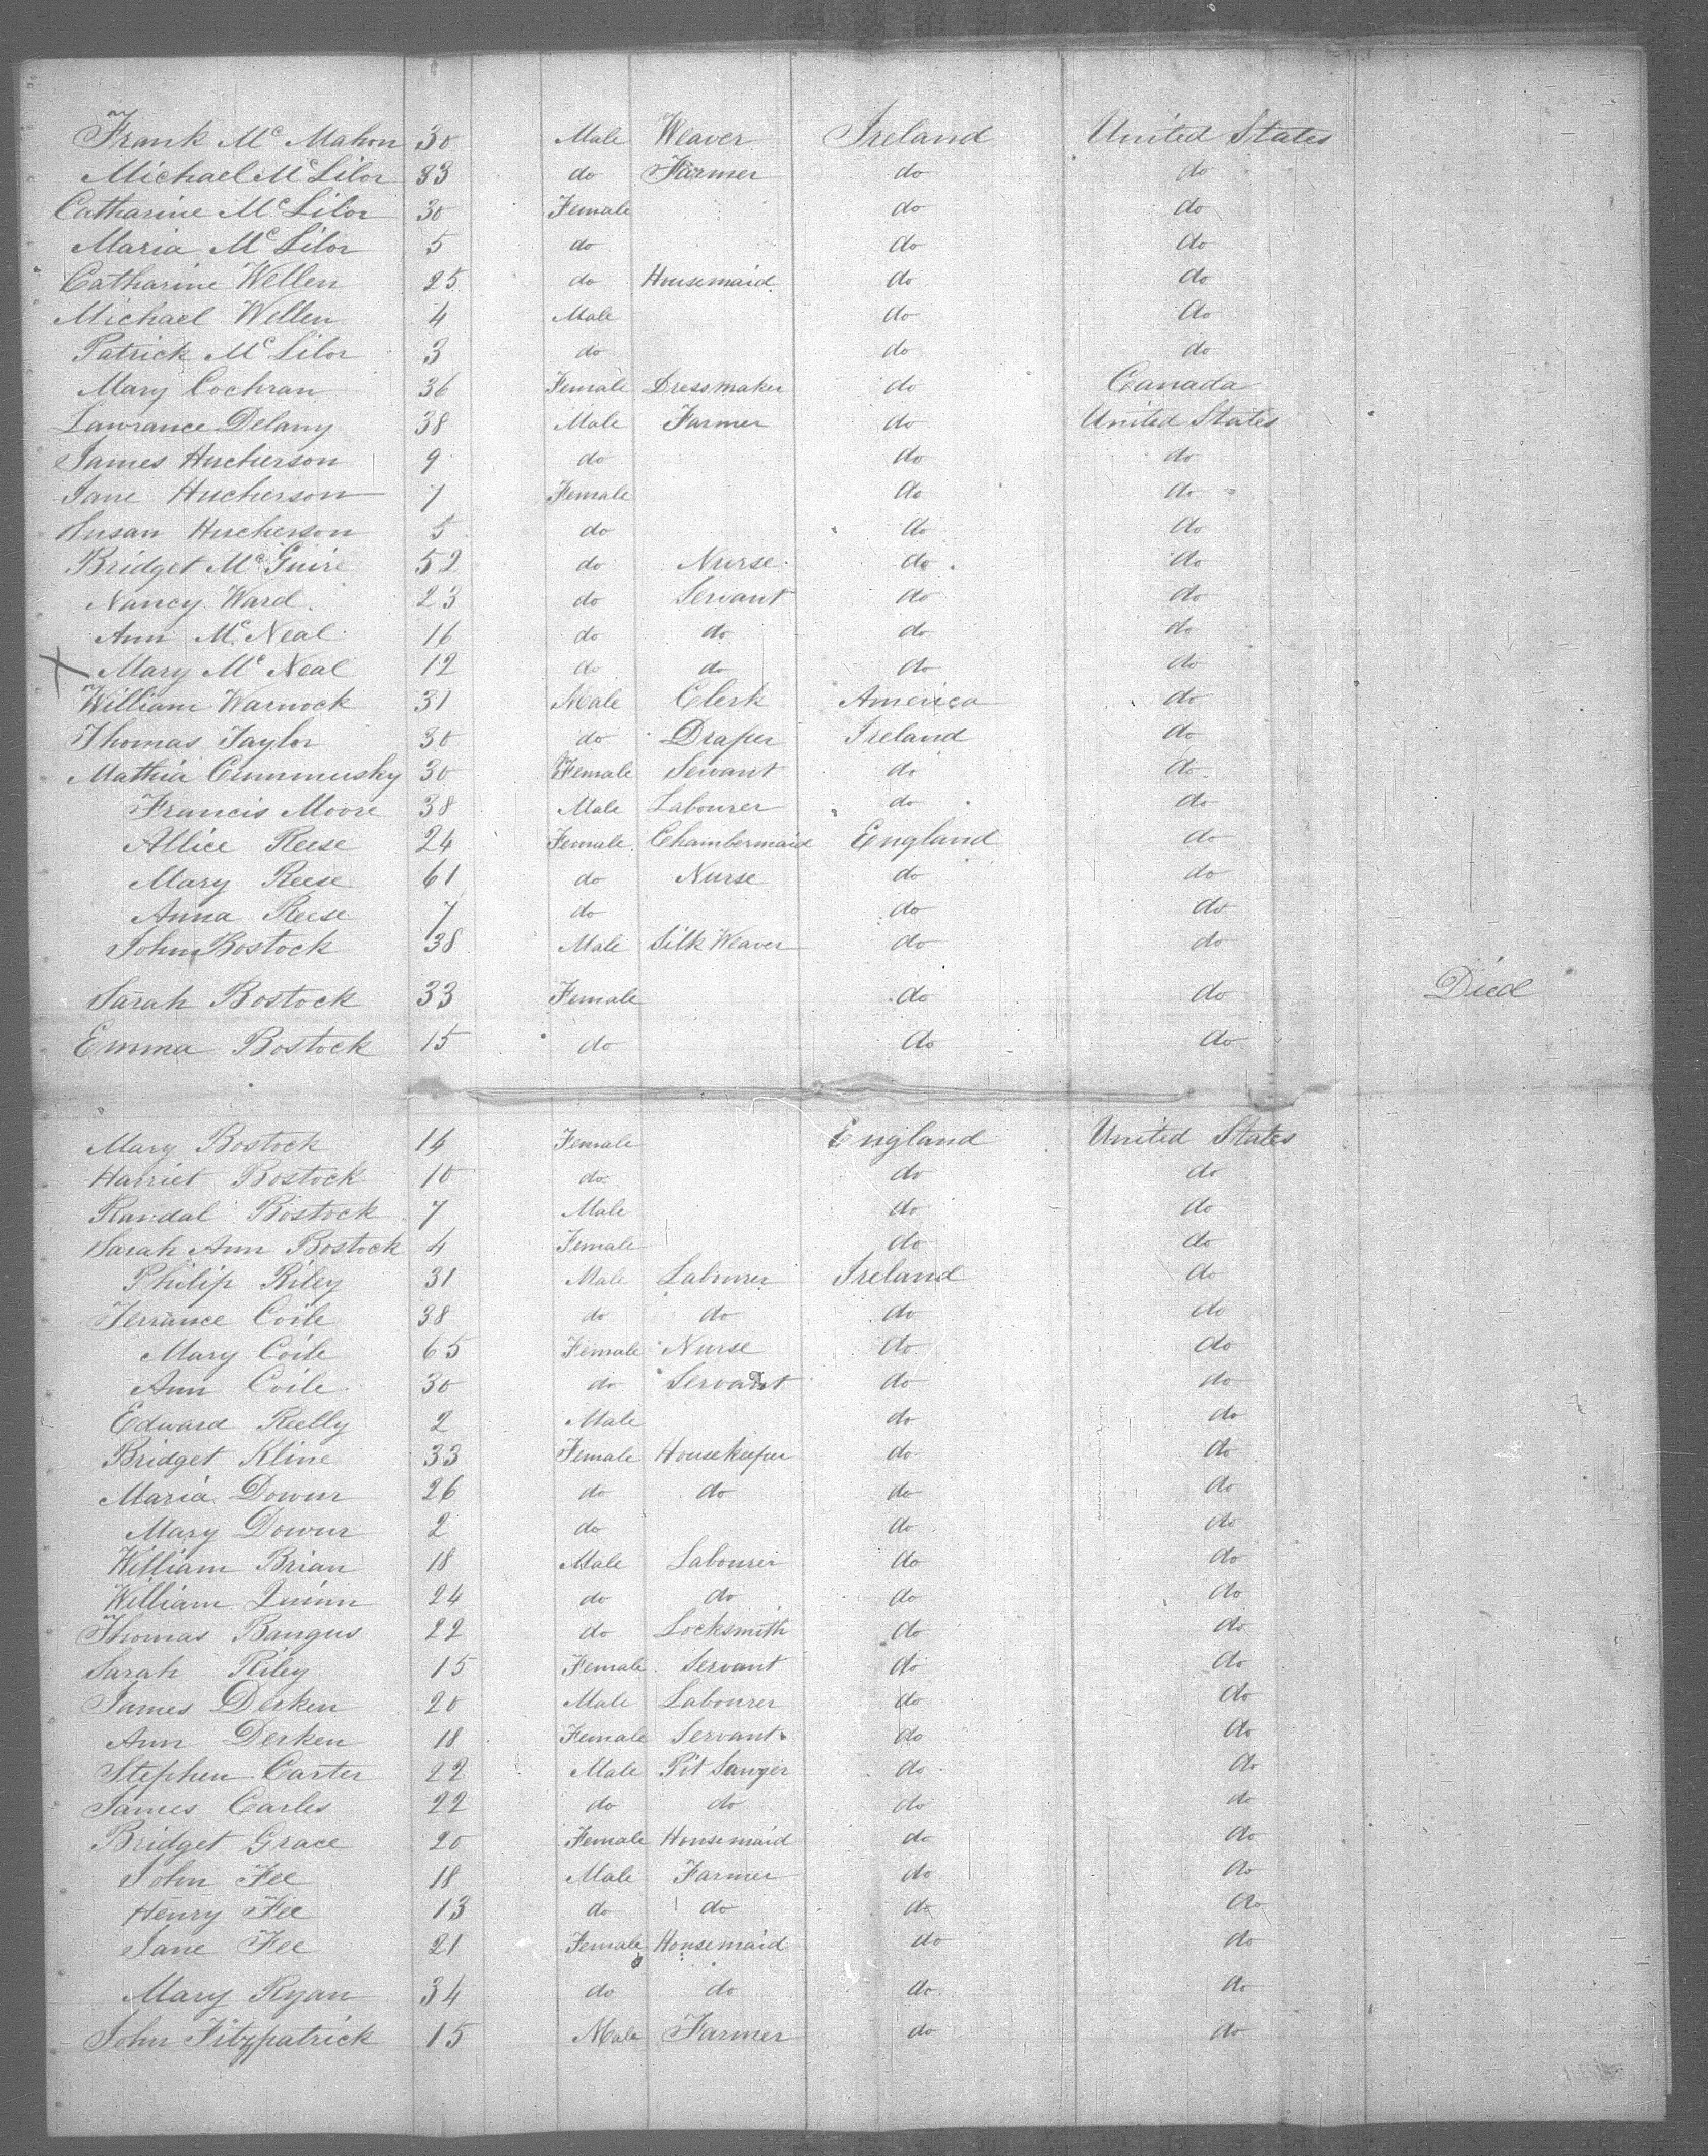 Frank Mc Mahon 30 Male Weaver Ireland United States
Michael Mc Lilor 33 do Farmer do do
Catharine Mc Lilor 30 Female do do
Maria Mc Lilor 5 do do do
Catharine Wellen 25 do Housemaid do do
Michael Wellen 4 Male do do
Patrick Mc Lilor 3 do do do
Mary Cochran 36 Female Dressmaker do Canada
Lawrance Delany 38 Male Farmer do United States
James Hucherson 9 do do do
Jane Hucherson 7 Female do do
Susan Hucherson 5 do do do
Bridget Mc Guire 52 do Nurse do do
Nancy Ward 23 do Servant do do
Ann Mc Neal 16 do do do do
X Mary Mc Neal 12 do do do do
William Warnock 31 Male Clerk America do
Thomas Taylor 30 do Draper Ireland do
Mathia Cummusky 30 Female Servant do do
Francis Moore 38 Male Labourer do do
Allice Reese 24 Female Chambermaid England do
Mary Reese 61 do Nurse do do
Anna Reese 7 do do do
John Bostock 38 Male Silk Weaver do do
Sarah Bostock 33 Female do do Died
Emma Bostock 15 do do do
Mary Bostock 14 Female England United States
Harriet Bostock 10 do do do
Randal Bostock 7 Male do do
Sarah Ann Bostock 4 Female do do
Philip Riley 31 Male Labourer Ireland do
Terrance Coile 38 do do do do
Mary Coile 65 Female Nurse do do
Ann Coile 30 do Servant do do
Edward Reelly 2 Male do do
Bridget Kline 33 Female Housekeeper do do
Maria Dowur 26 do do do do
Mary Dowur 2 do do do
William Brian 18 Male Labourer do do
William Quinn 24 do do do do
Thomas Bangus 22 do Locksmith do do
Sarah Riley 15 Female Servant do do
James Derken 20 Male Labourer do do
Ann Derken 18 Female Servant do do
Stephen Carter 22 Male Pit Sawyer do do
James Carles 22 do do do do
Bridget Grace 20 Female Housemaid do do
John Fee 18 Male Farmer do do
Henry Fee 13 do do do do
Jane Fee 21 Female Housemaid do do
Mary Ryan 34 do do do do
John Fitzpatrick 15 Male Farmer do do